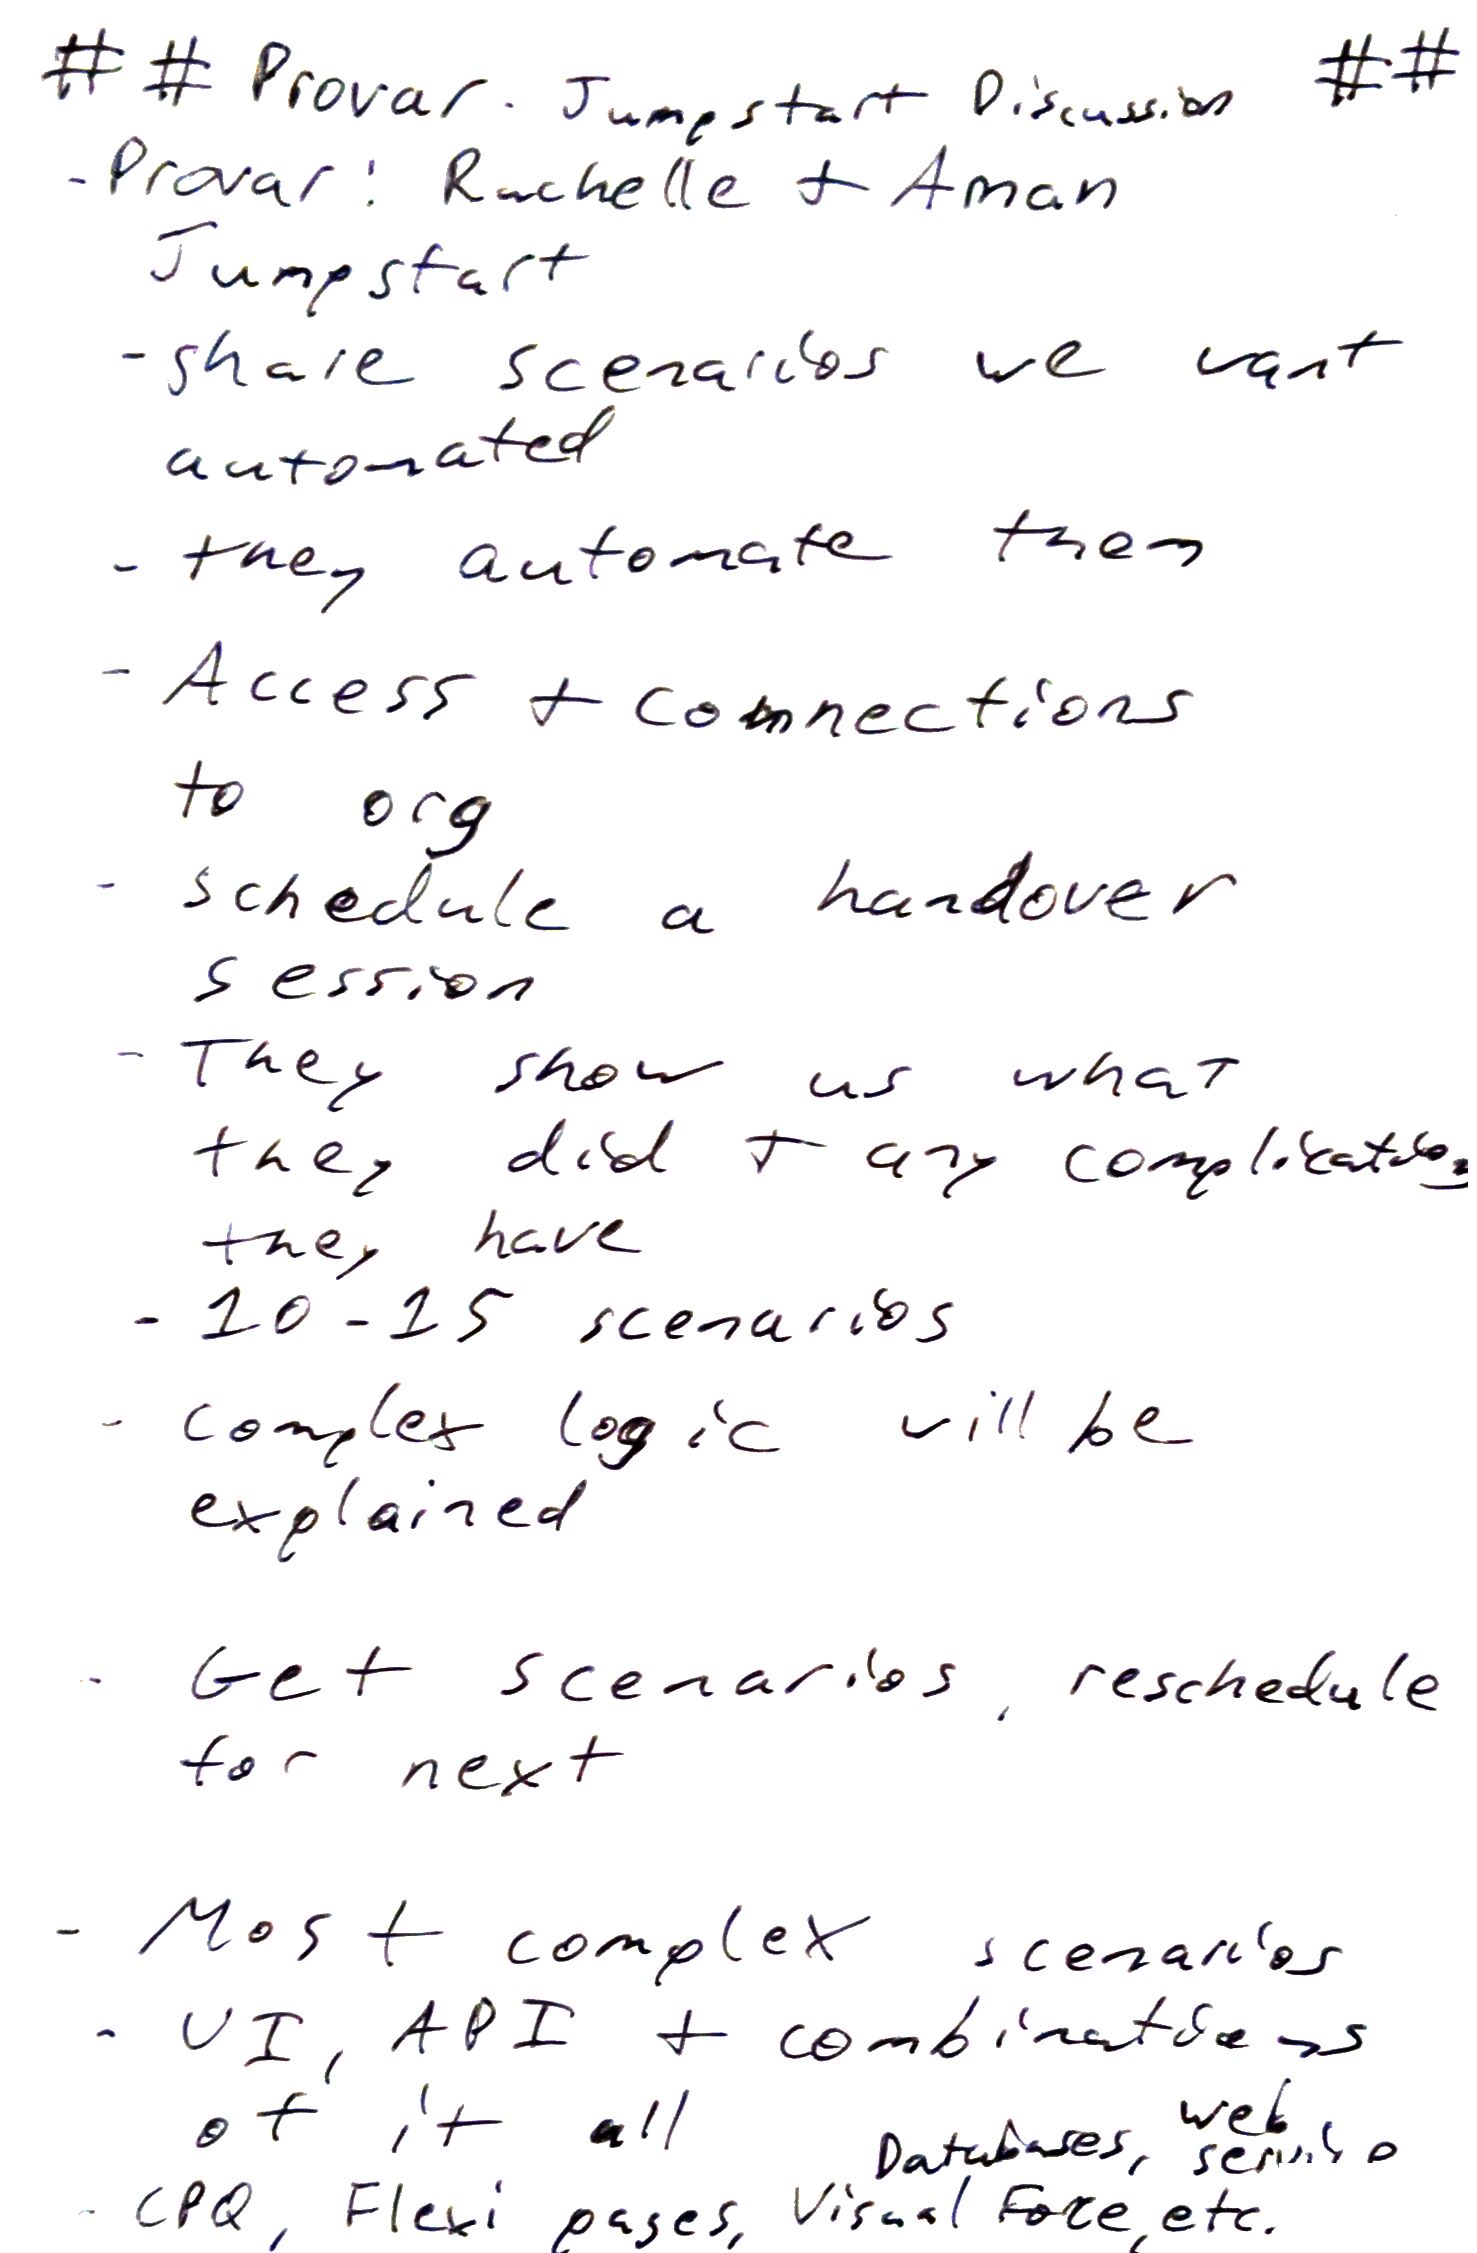 ## Provar - Jumpstart Discussion ##
- Provar: Rachelle + Aman
Jumpstart
- share scenarios we want
automated
- they automate them
- Access + connections
to org
- schedule a handover
session
- They show us what
they did + any complications
they have
- 10-15 scenarios
- complex logic will be
explained
- Get scenarios, reschedule
for next
- Most complex scenarios
- UI, API + combinations
of it all
Databases, web
- CPQ, Flexi pages, Visual Force, etc.